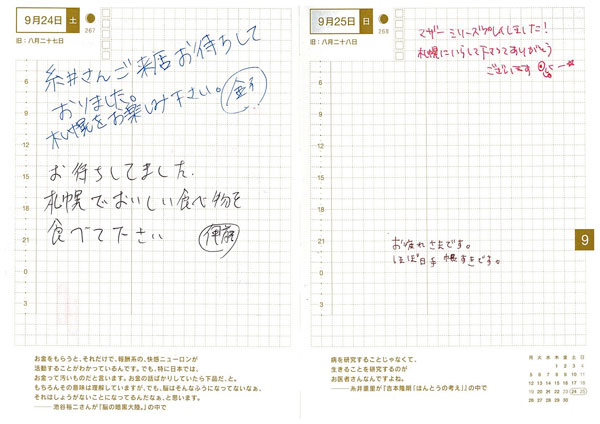 9月24日 土 267
旧:八月二十七日
糸井さんご来店お待ちして
おりました。
札幌をお楽しみ下さい。 金子
お待ちしてました
札幌でおいしい食べ物を
食べて下さい
6
9
12
15
18
21
0
3
お金をもらうと、それだけで、報酬系の、快感ニューロンが
活動することがわかっているんです。でも、特に日本では、
お金って汚いものだと言います。お金の話ばかりしていたら下品だ、と。
もちろんその意味は理解していますが、でも、脳はそんなふうになってないなぁ、
それはしょうがないことになってるんだなぁ、と思います。
――池谷裕二さんが『脳の暗黒大陸。』の中で
9月25日 日 268
旧:八月二十八日
マザーシリーズプレイしました!
札幌にいらして下さってありがとう
ございます
お疲れさまです。
ほぼ日手帳すきです。
6
9
12
15
18
21
0
3
9
病を研究することじゃなくて、
生きることを研究するのが
お医者さんなんですよね。
――糸井重里が『吉本隆明「ほんとうの考え」』の中で
月 火 水 木 金 土 日
1 2 3 4
5 6 7 8 9 10 11
12 13 14 15 16 17 18
19 20 21 22 23 24 25
26 27 28 29 30